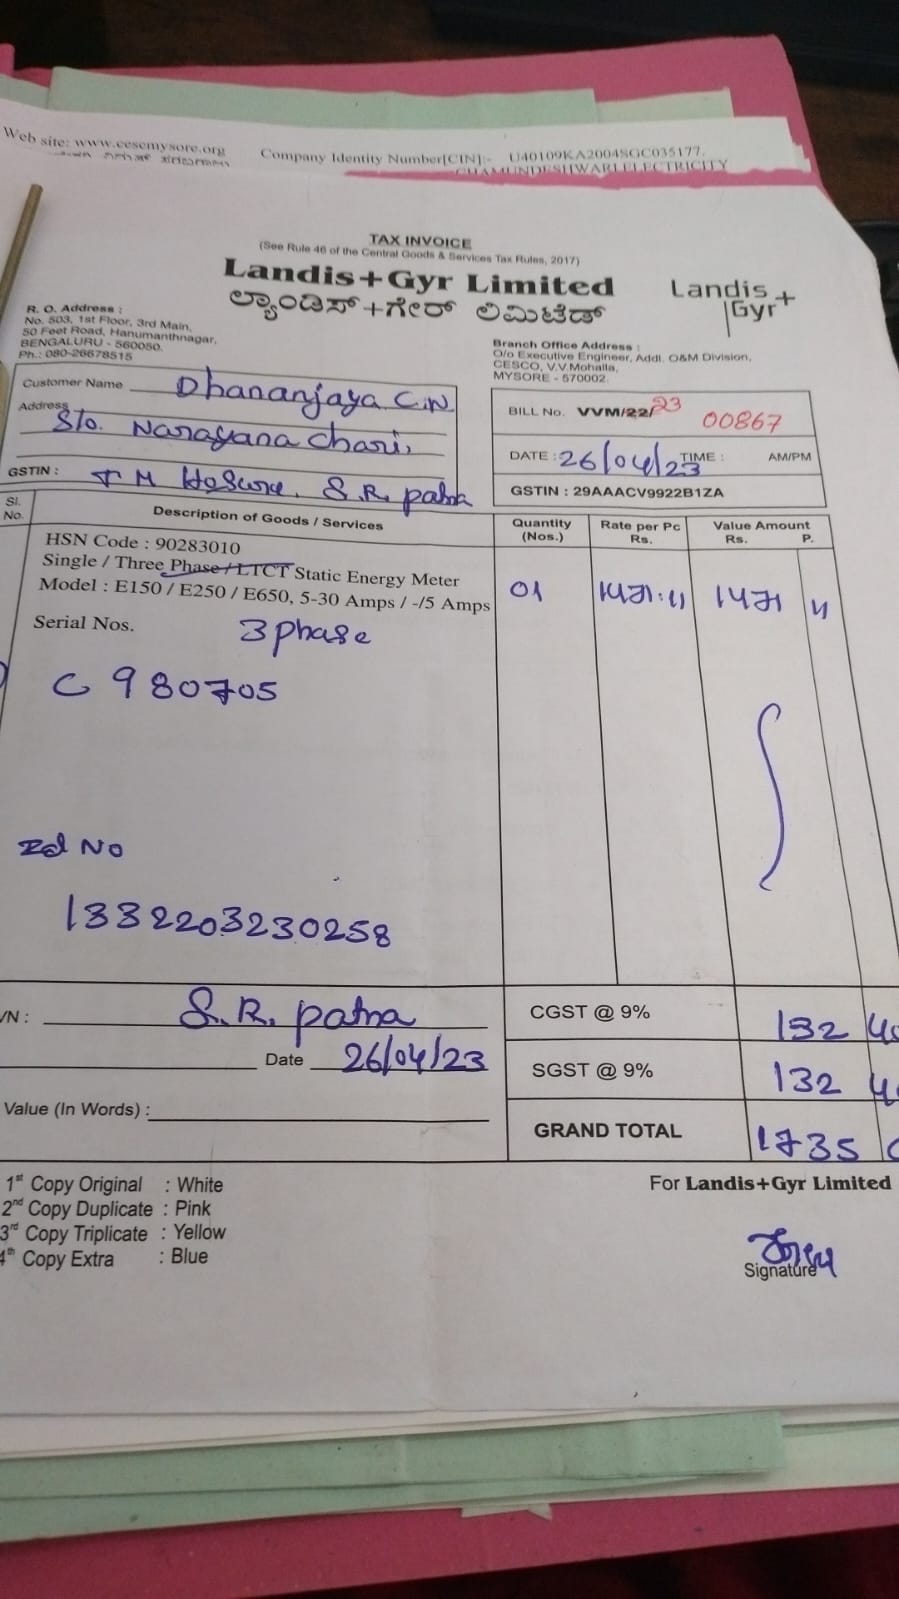 Web site: www.cescmysore.org Company Identity Number[CIN]:- U40109KA2004SGC035177.
CHAMUNDESHWARI ELECTRICITY
TAX INVOICE
(See Rule 46 of the Central Goods & Services Tax Rules, 2017)
Landis+Gyr Limited
ಲ್ಯಾಂಡಿಸ್+ಗೇರ್ ಲಿಮಿಟೆಡ್
Landis
Gyr+
R. O. Address :
No. 503, 1st Floor, 3rd Main,
50 Feet Road, Hanumanthnagar,
BENGALURU - 560050.
Ph.: 080-26678515
Branch Office Address :
O/o Executive Engineer, Addl. O&M Division,
CESCO, V.V.Mohalla,
MYSORE - 570002.
Customer Name Dhananjaya C.N
Address S/o. Narayana Chari,
GSTIN : T M Hosure, S.R. patna
BILL No. VVM/22/23 00867
DATE : 26/04/23 TIME : AM/PM
GSTIN : 29AAACV9922B1ZA
Sl. No. Description of Goods / Services Quantity (Nos.) Rate per Pc Rs. Value Amount Rs. P.
HSN Code : 90283010
Single / Three Phase / LTCT Static Energy Meter
Model : E150 / E250 / E650, 5-30 Amps / -/5 Amps 01
Serial Nos. 3 phase
C 980705
Id No
1332203230258
VN : S.R. patna
Date 26/04/23
Value (In Words) :
CGST @ 9% 132
SGST @ 9% 132
GRAND TOTAL 1735
1st Copy Original : White
2nd Copy Duplicate : Pink
3rd Copy Triplicate : Yellow
4th Copy Extra : Blue
For Landis+Gyr Limited
Signature